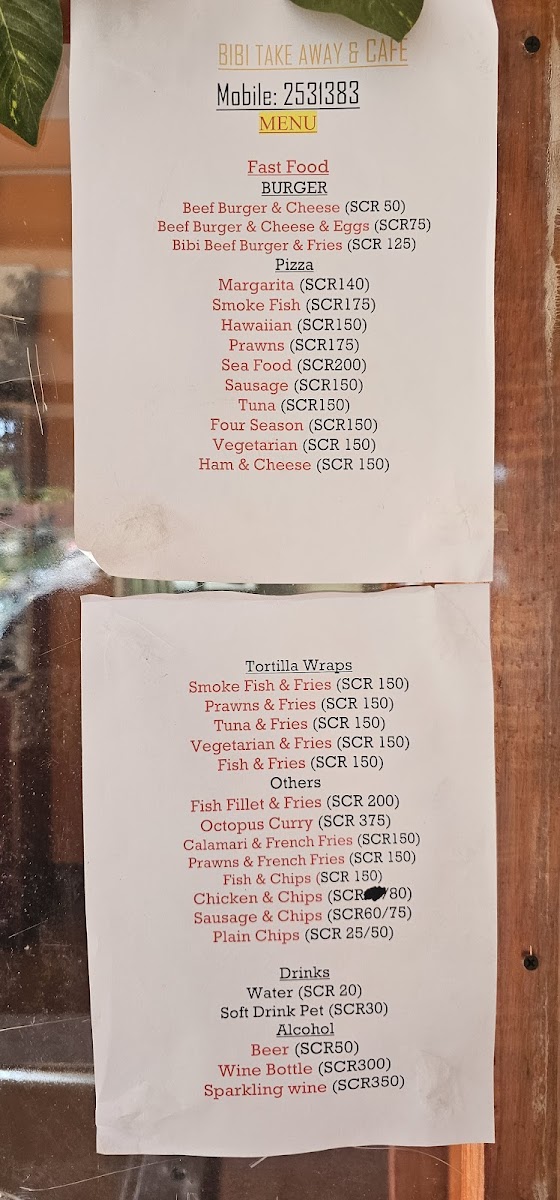 BIBI TAKE AWAY & CAFE
Mobile: 2531383
MENU
Fast Food
BURGER
Beef Burger & Cheese (SCR 50)
Beef Burger & Cheese & Eggs (SCR75)
Bibi Beef Burger & Fries (SCR 125)
Pizza
Margarita (SCR140)
Smoke Fish (SCR175)
Hawaiian (SCR150)
Prawns (SCR175)
Sea Food (SCR200)
Sausage (SCR150)
Tuna (SCR150)
Four Season (SCR150)
Vegetarian (SCR 150)
Ham & Cheese (SCR 150)
Tortilla Wraps
Smoke Fish & Fries (SCR 150)
Prawns & Fries (SCR 150)
Tuna & Fries (SCR 150)
Vegetarian & Fries (SCR 150)
Fish & Fries (SCR 150)
Others
Fish Fillet & Fries (SCR 200)
Octopus Curry (SCR 375)
Calamari & French Fries (SCR150)
Prawns & French Fries (SCR 150)
Fish & Chips (SCR 150)
Chicken & Chips (SCR /80)
Sausage & Chips (SCR60/75)
Plain Chips (SCR 25/50)
Drinks
Water (SCR 20)
Soft Drink Pet (SCR30)
Alcohol
Beer (SCR50)
Wine Bottle (SCR300)
Sparkling wine (SCR350)